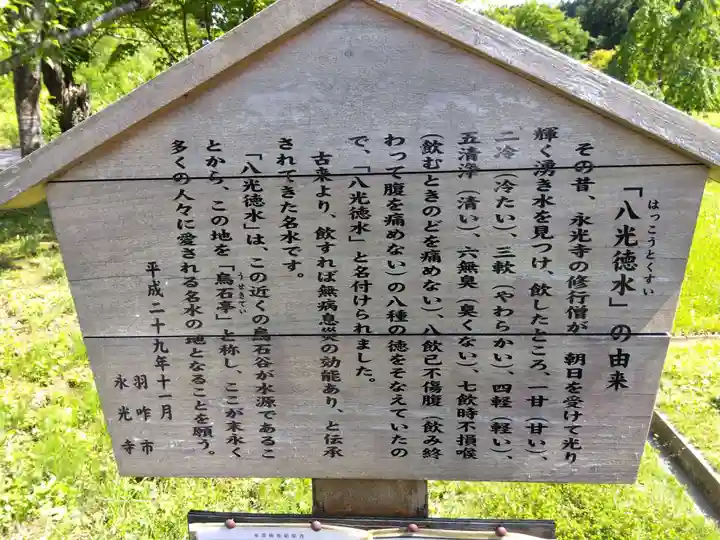 はっこうとくすい
「八光徳水」の由来
その昔、永光寺の修行僧が　朝日を受けて光り
輝く湧き水を見つけ、飲したところ、一甘（甘い）、
二冷（冷たい）、三軟（やわらかい）、四軽（軽い）、
五清浄（清い）、六無臭（臭くない）、七飲時不損喉
（飲むときのどを痛めない）、八飲已不傷腹（飲み終
わって腹を痛めない）の八種の徳をそなえていたの
で、「八光徳水」と名付けられました。
古来より、飲すれば無病息災の効能あり、と伝承
されてきた名水です。
「八光徳水」は、この近くの烏石谷が水源であるこ
うせきてい
とから、この地を「烏石亭」と称し、ここが末永く
多くの人々に愛される名水の地となることを願う。
平成二十九年十一月
羽咋市
永光寺